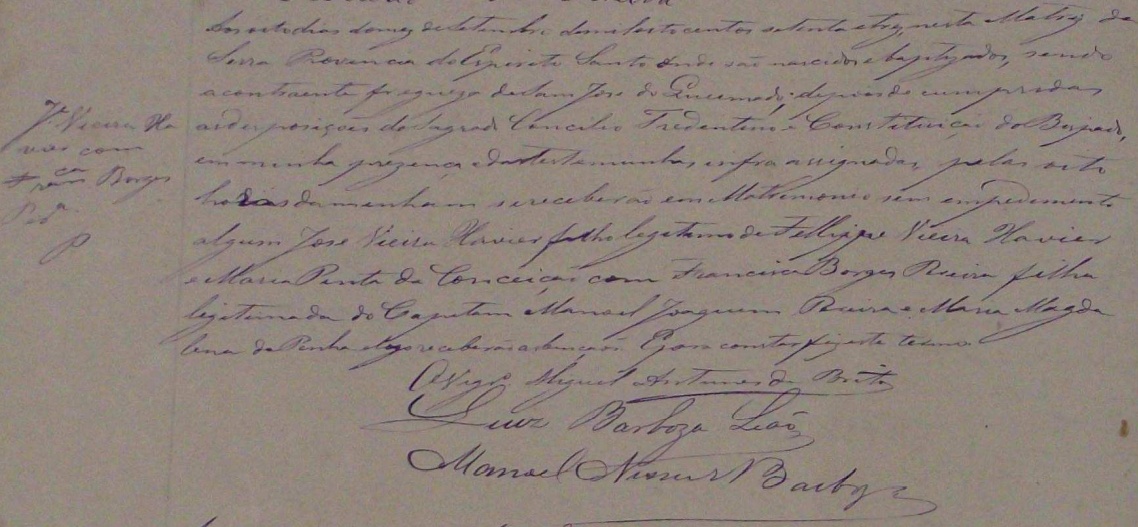 Aos oito dias do mez de Setembro de mil oito centos setenta e trez, nesta Matriz da
Serra Provincia do Espirito Santo onde são nascidos e baptizados, sendo
a contraente fregueza de Sam José do Queimado; depois de cumpridas
as desposições do Sagrado Concilio Tredentino e Constituição do Bispado,
em minha prezença e das testamunhas infra assignadas, pelas oito
horas da menham se receberão em Matrimonio sem empedimento
algum José Vieira Xavier filho legitimo de Fellippe Vieira Xavier
e Maria Pinta da Conceição com Francisca Borges Pereira filha
legitimada do Capitam Manoel Joaquim Pereira e Maria Magda
lena da Penha e logo receberão a bençaõ. E para constar fiz este termo
O Vigrº Miguel Antunes de Brito
Luiz Barboza Leão
Manoel Nunes Barboza
Jº Vieira Xa
vier com
Franca Borges
Perª
P